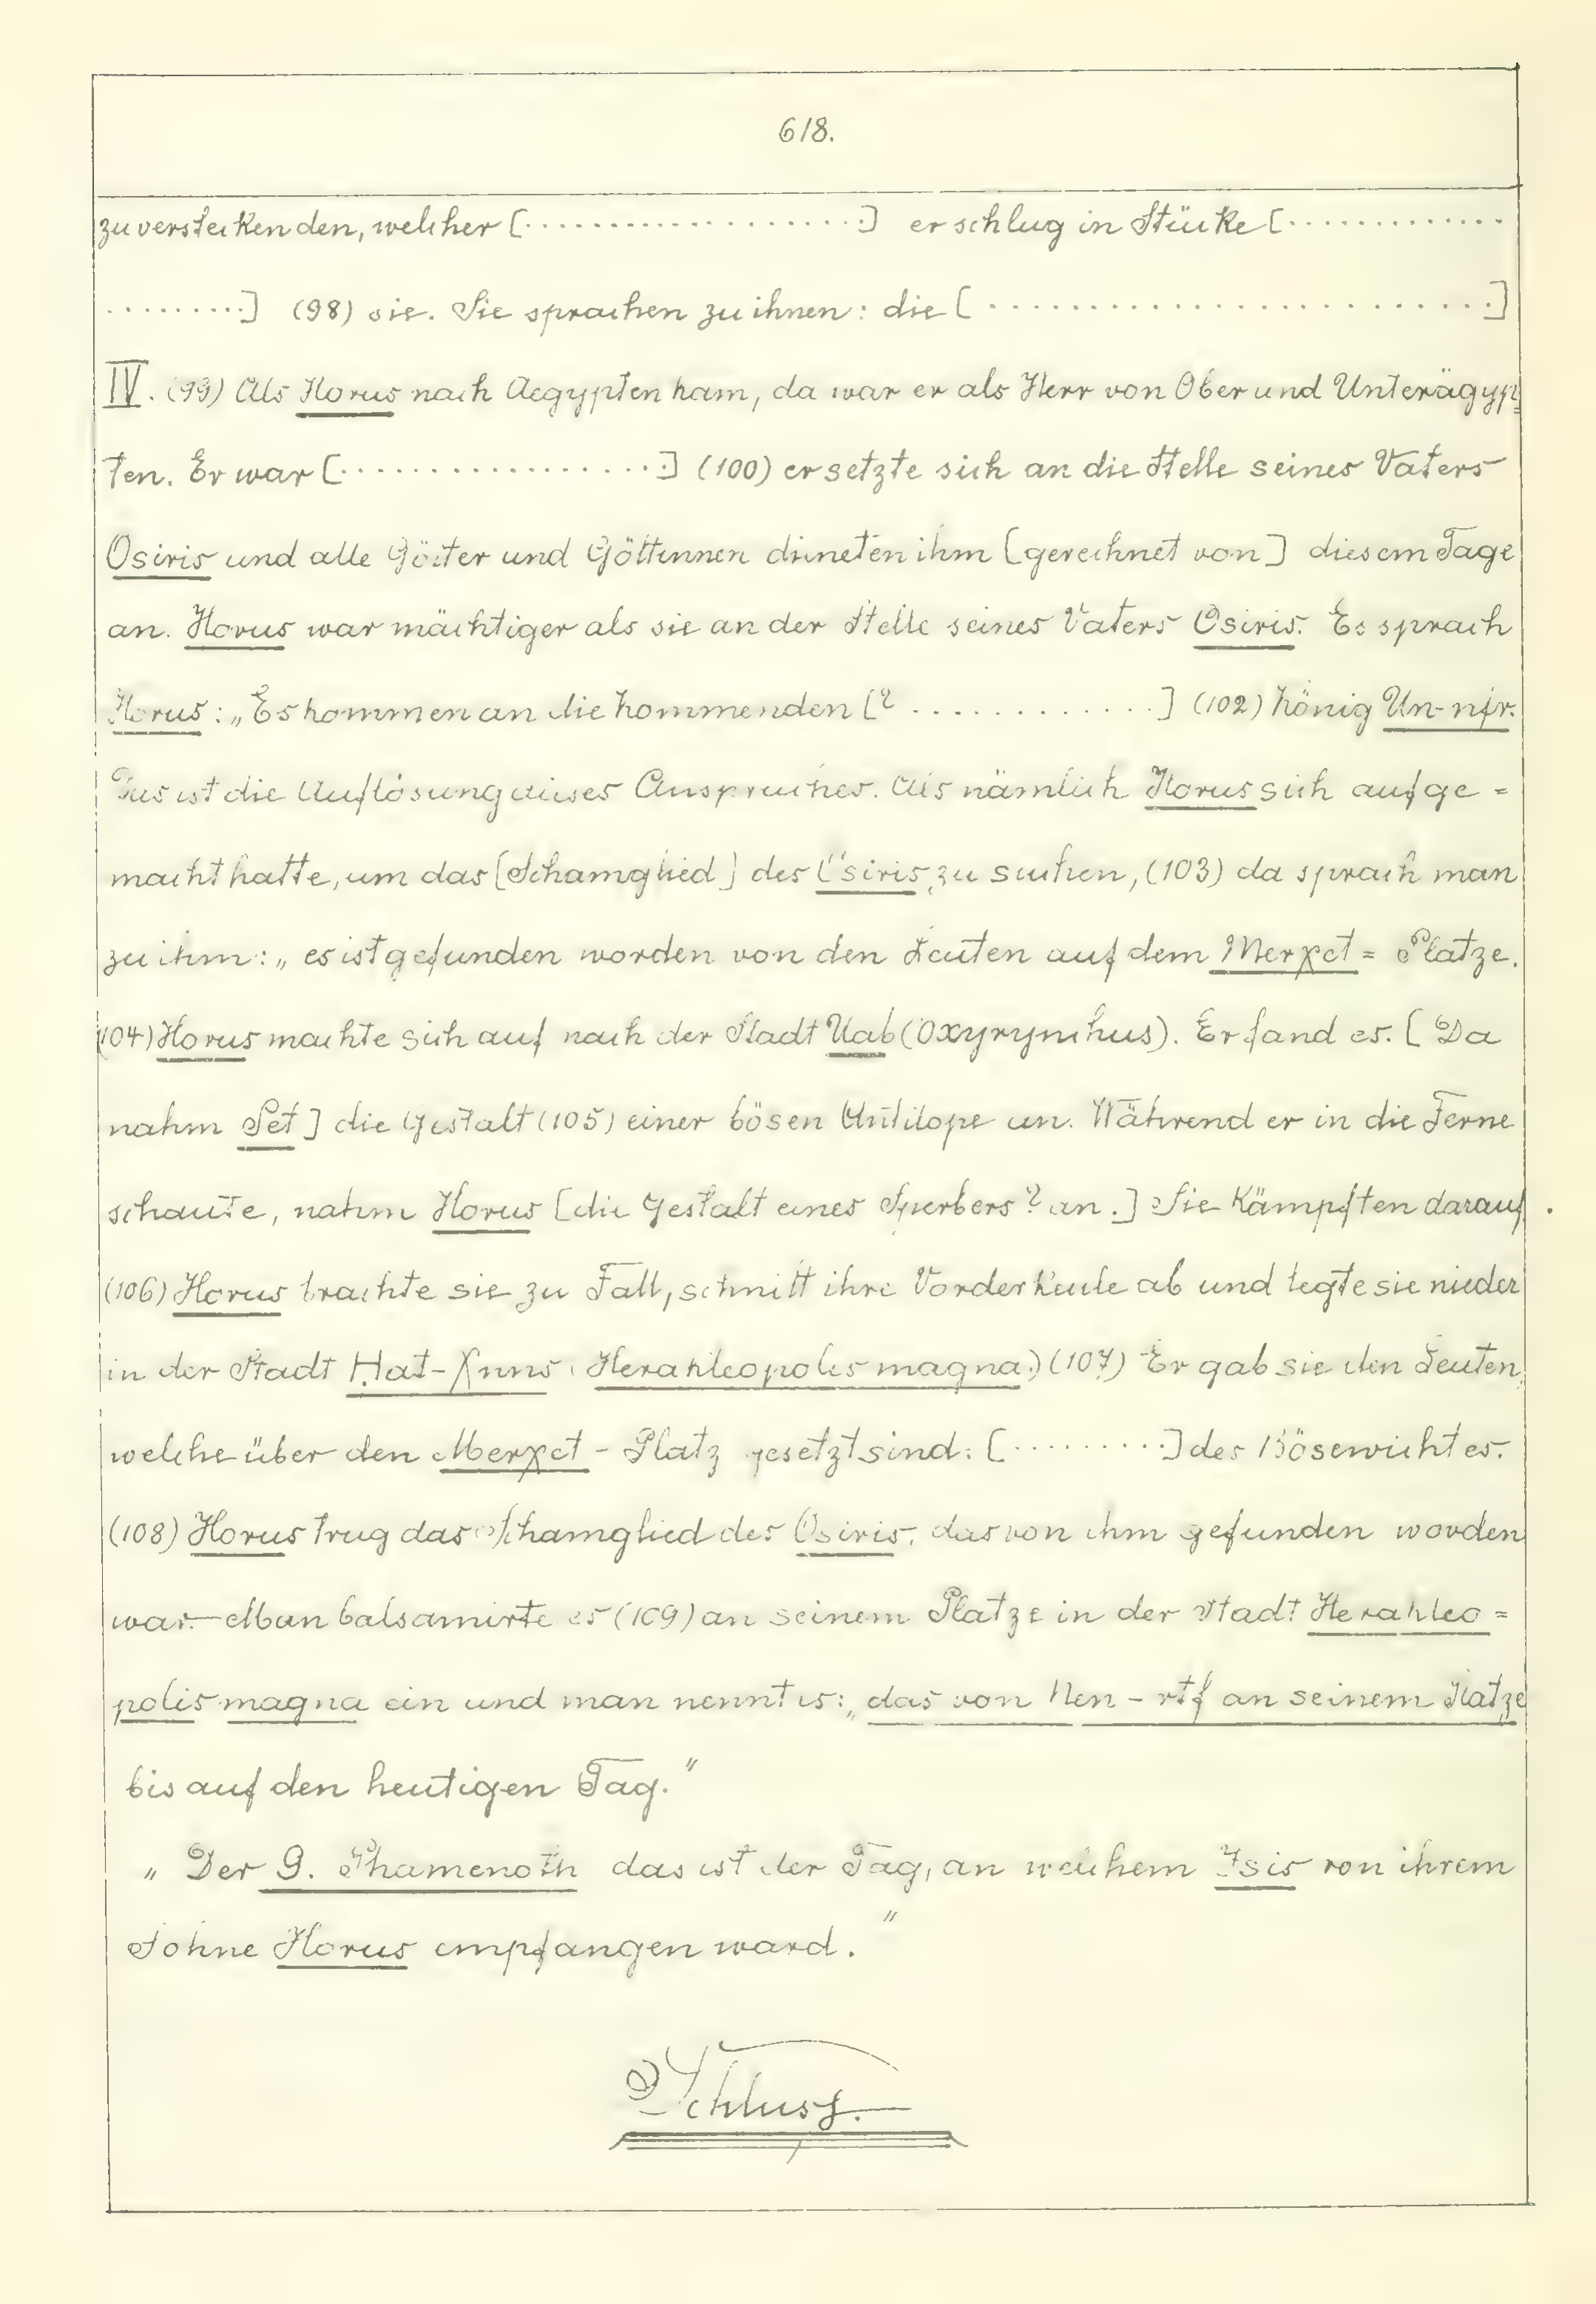 618.
zu verstecken den, welcher [...................] er schlug in Stücke [.............
.........] (98) sie. Sie sprachen zu ihnen: die [............................]
IV. (99) Als Horus nach Aegypten kam, da war er als Herr von Ober und Unterägyp=
ten. Er war [..................] (100) er setzte sich an die Stelle seines Vaters
Osiris und alle Götter und Göttinnen dieneten ihm [gerechnet von] diesem Tage
an. Horus war mächtiger als sie an der Stelle seines Vaters Osiris. Es sprach
Horus: „Es kommen an die kommenden [? .............] (102) König Un-nfr.
Das ist die Auflösung dieses Anspruches. Als nämlich Horus sich aufge=
macht hatte, um das [Schamglied] des Osiris zu suchen, (103) da sprach man
zu ihm: „es ist gefunden worden von den Leuten auf dem Merχet= Platze.
(104) Horus machte sich auf nach der Stadt Uab (Oxyrynchus). Er fand es. [Da
nahm Set] die Gestalt (105) einer bösen Antilope an. Während er in die Ferne
schaute, nahm Horus [die Gestalt eines Sperbers? an.] Sie kämpften darauf.
(106) Horus brachte sie zu Fall, schnitt ihre Vorderkeule ab und legte sie nieder
in der Stadt Hat-χnns (Herakleopolis magna.) (107) Er gab sie den Leuten,
welche über den Merχet - Platz gesetzt sind: [.........] des Bösewichtes.
(108) Horus trug das Schamglied des Osiris, das von ihm gefunden worden
war.— Man balsamirte es (109) an seinem Platze in der Stadt Herakleo=
polis magna ein und man nennt es: „das von Nen-rtf an seinem Platze
bis auf den heutigen Tag.“
„Der 9. Phamenoth das ist der Tag, an welchem Isis von ihrem
Sohne Horus empfangen ward.“
Schluss.